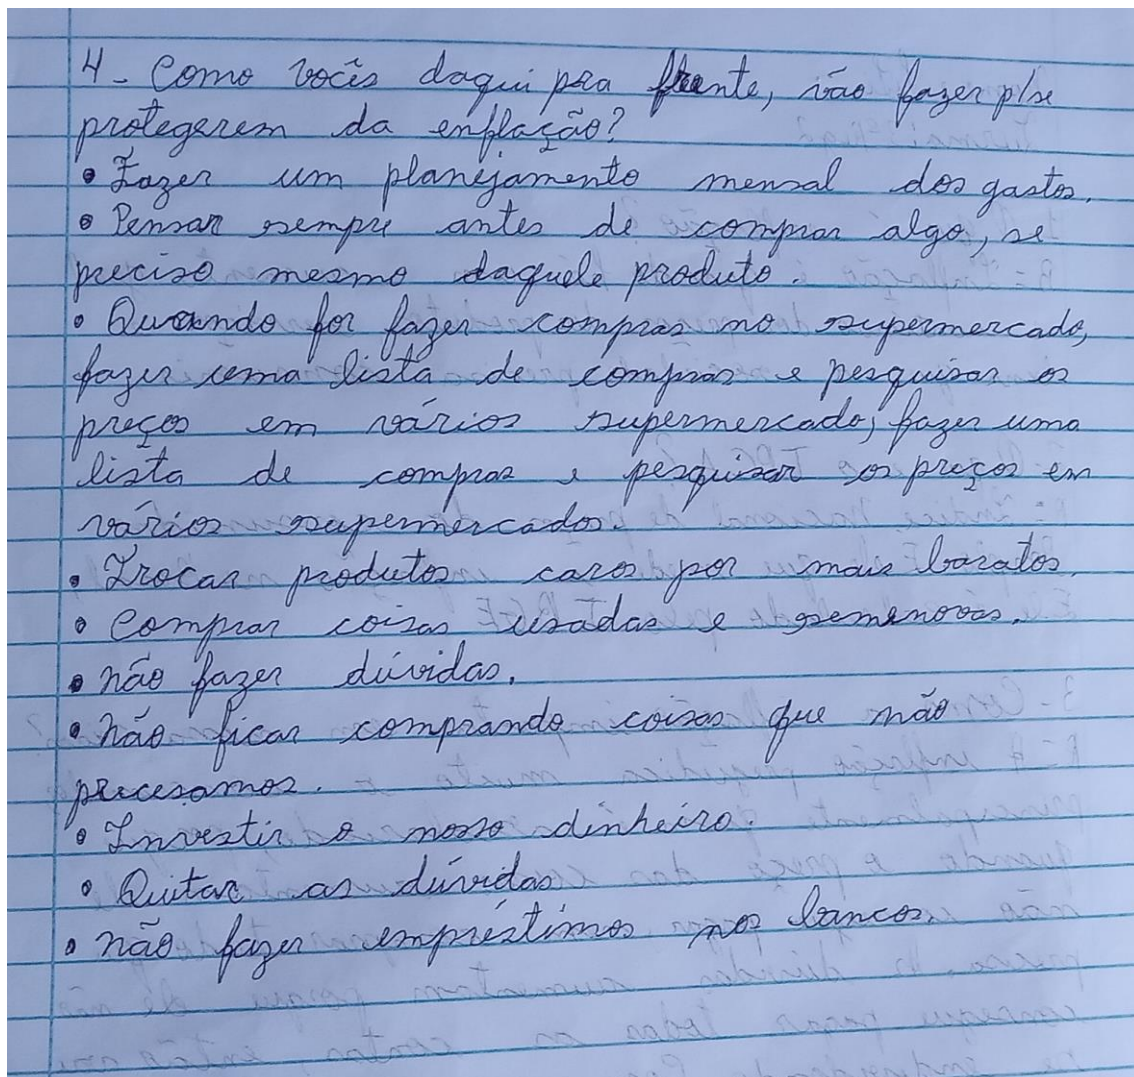 4- Como vocês daqui pra frente, vão fazer p/se
protegerem da enflação?
• Fazer um planejamento mensal dos gastos.
• Pensar sempre antes de comprar algo, se
preciso mesmo daquele produto.
• Quando for fazer compras no supermercado,
fazer uma lista de compras e pesquisar os
preços em vários supermercado, fazer uma
lista de compras e pesquisar os preços em
vários supermercados.
• Trocar produtos caros por mais baratos.
• Comprar coisas usadas e semenovas.
• não fazer dúvidas.
• não ficar comprando coisas que não
precesamos.
• Investir o nosso dinheiro.
• Quitar as dúvidas
• não fazer empréstimos nos bancos.